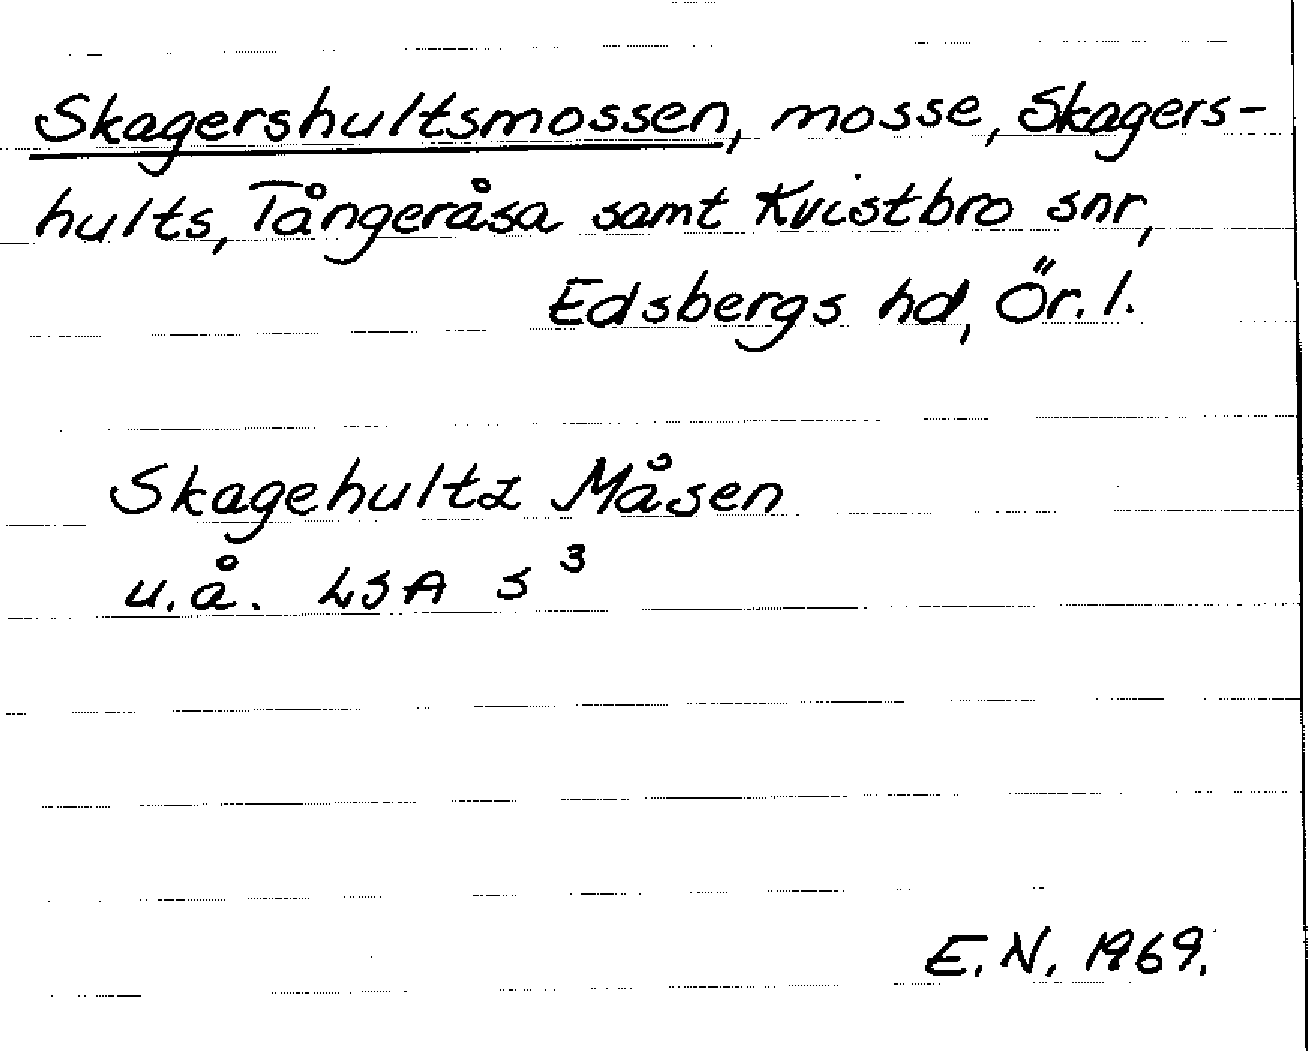 Skagershultsmossen, mosse, Skagers-
hults, Tångeråsa samt Kvistbro snr,
Edsbergs hd, Ör. l.
Skagehultz Måsen
u.å. LSA S³
E.N. 1969.